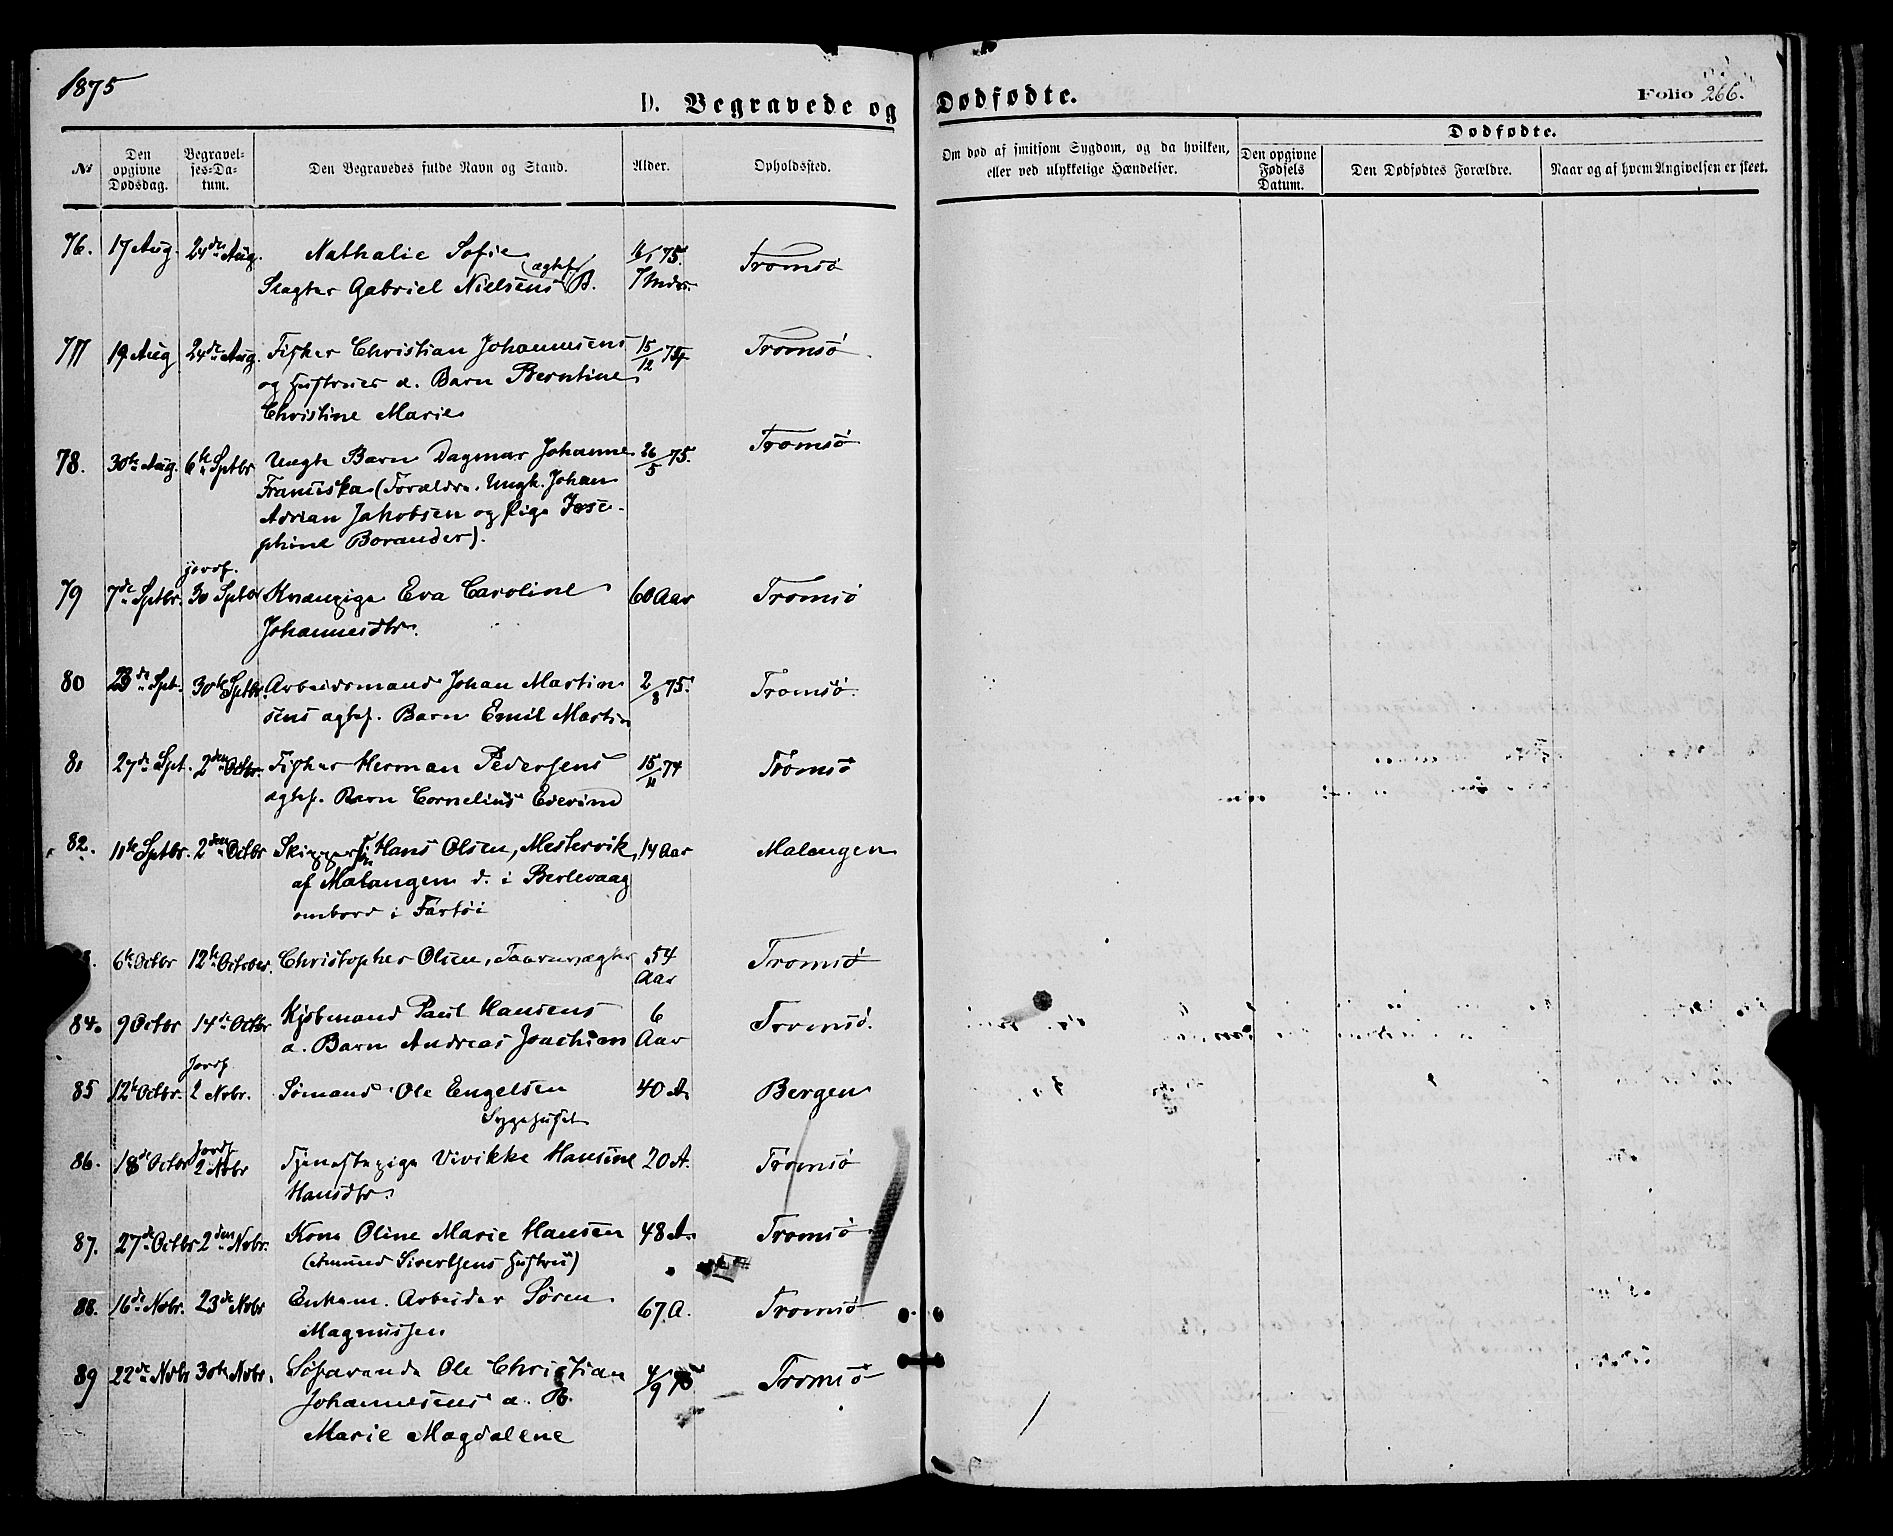 1875
D. Begravede og Dødfødte.
Folio 266.
No
Den opgivne Dødsdag.
Begravelses-Datum.
Den Begravedes fulde Navn og Stand.
Alder.
Opholdssted.
Om død af smitsom Sygdom, og da hvilken, eller ved ulykkelige Hændelser.
Dødfødte.
Den opgivne Fødsels Datum.
Den Dødfødtes Forældre.
Naar og af hvem Angivelsen er skeet.
76. 17 Aug. 24de Aug. Nathalie Sofie 75. Tromsø
Slagter Gabriel Nielsens ægtef. B. 7 Mdr.
77 19 Aug 24de Aug. Fisker Christian Johannesens 15/12 74 Tromsø
og Hustrues æ. Barn Berntine
Christine Marie
78. 30te Aug. 6te Sptbr Uægte Barn Dagmar Johanne 26/5 75. Tromsø
Franciska (Forældre. Ungk. Johan
Adrian Jakobsen og Pige Jose-
phine Borander).
jordf.
79 7de Sptbr. 30 Sptbr Kvænpige Eva Caroline 60 Aar Tromsø
Johannesdtr.
80 23de Spt. 30te Sptbr. Arbeidsmand Johan Martin 2/8 75. Tromsø.
sens ægtef. Barn Emil Martin
81 27de Spt. 2den Octbr. Fisker Herman Pedersens 15/11 74 Tromsø
ægtef. Barn Cornelius Edevind
82. 11te Sptbr. 2den Octbr Skipper Hans Olsen, Mestervik 14 Aar Malangen
af Malangen d. i Berlevaag
ombord i Fartøi
6te Octbr 12te October. Christopher Olsen, Taarnvægter 54 Tromsø
Aar
84. 9 Octbr 14de Octbr Kjøbmand Paul Hansens 6 Tromsø.
æ. Barn Andreas Joachim Aar
Jordf
85 12te Octbr. 2 Novbr. Sømand Ole Engelsen 40 A. Bergen
Sygehuset
Jordf
86. 18de Octbr 2 Novbr Tjenestepige Vivikke Hansine 20 A. Tromsø
Hansdtr.
87. 27de Octbr 2den Novbr. Kone Oline Marie Hansen 48 A. Tromsø
(Amund Sivertsens Hustru)
88. 16de Novbr. 23de Novbr Enkem. Arbeider Søren 67 A. Tromsø
Magnussen
89 22de Novbr 30te Novbr. Søfarende Ole Christian 4/9 75 Tromsø
Johannesens æ. B.
Marie Magdalene